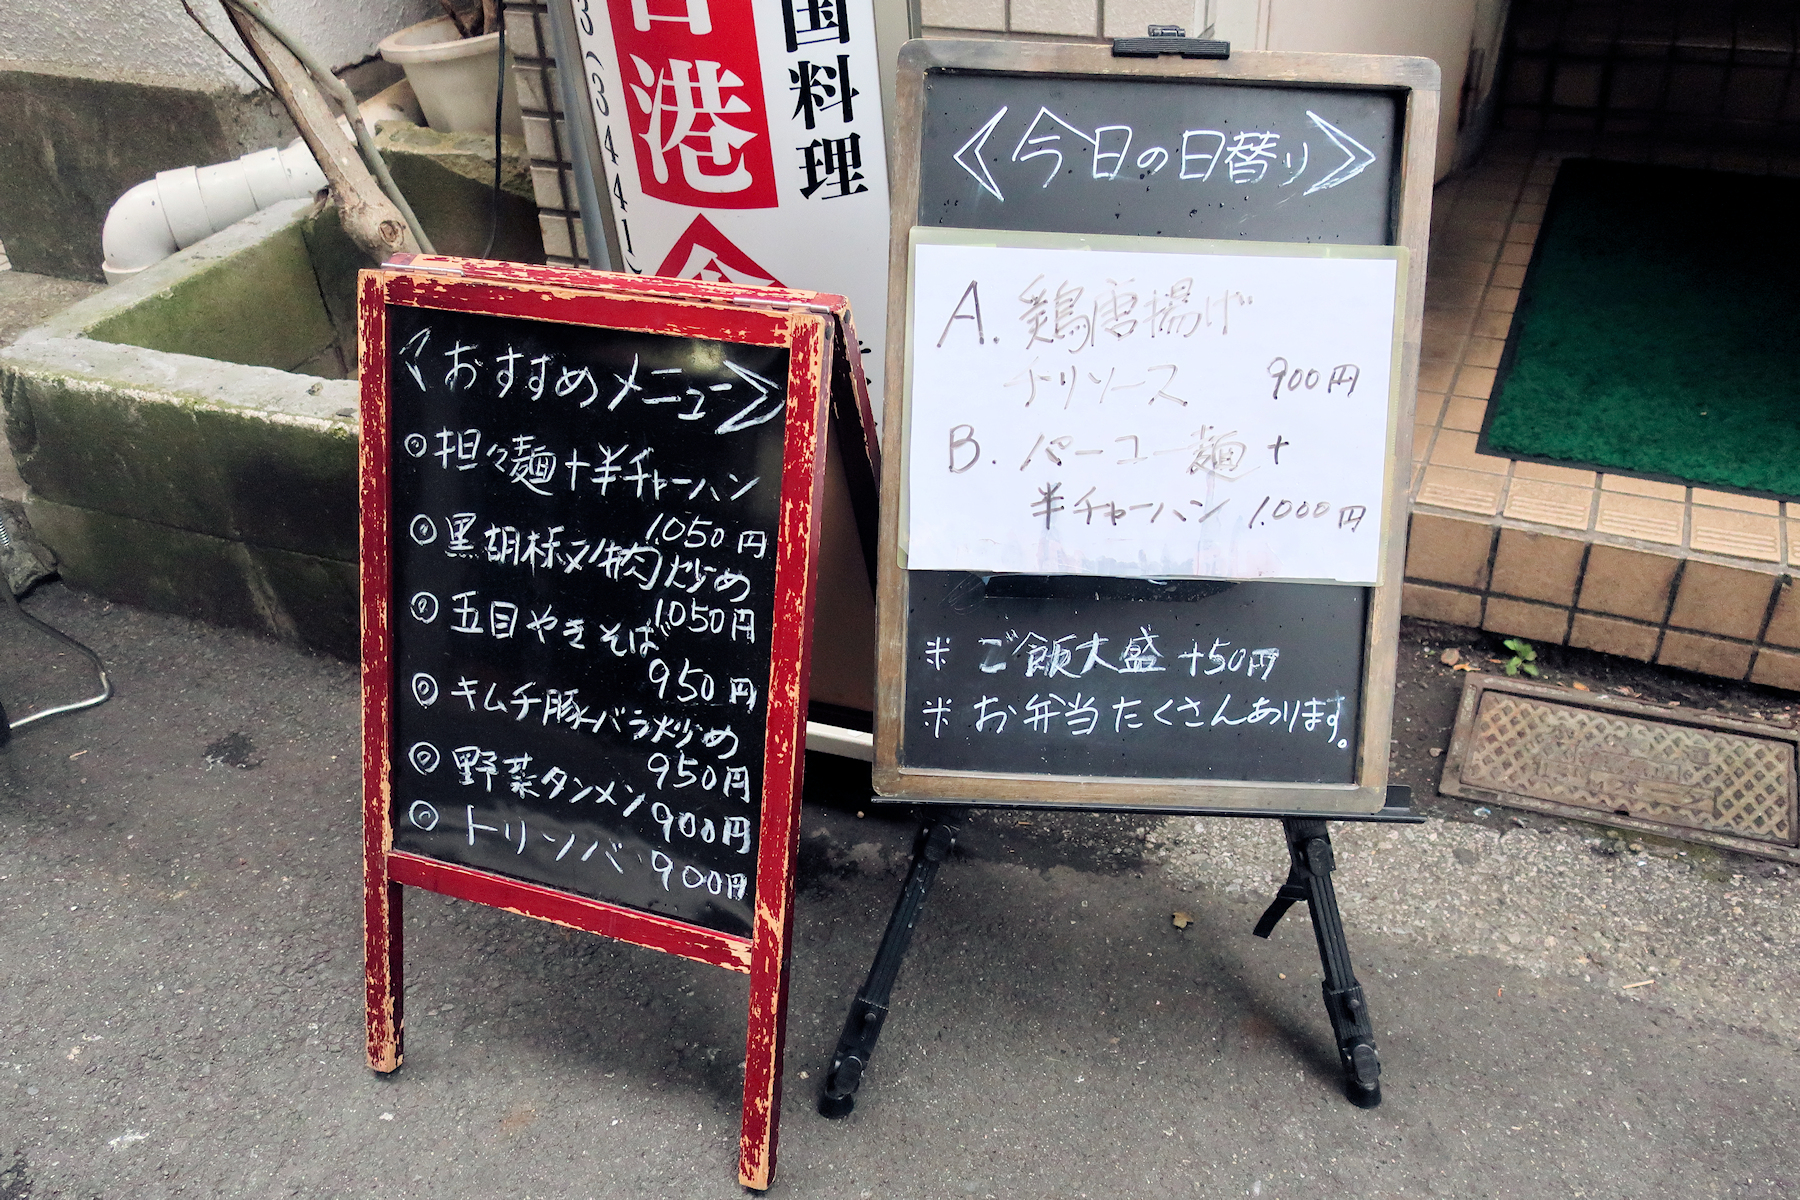 国料理
港
3441
<おすすめメニュー>
◎担々麺+半チャーハン
1.050円
◎黒胡椒 肉炒め
1.050円
◎五目やきそば
950円
◎キムチ豚バラ炒め
950円
◎野菜タンメン 900円
◎トリソバ 900円
<今日の日替り>
A. 鶏唐揚げ
チリソース 900円
B. パーコー麺+
半チャーハン 1.000円
※ ご飯大盛 +50円
※ お弁当たくさんあります。